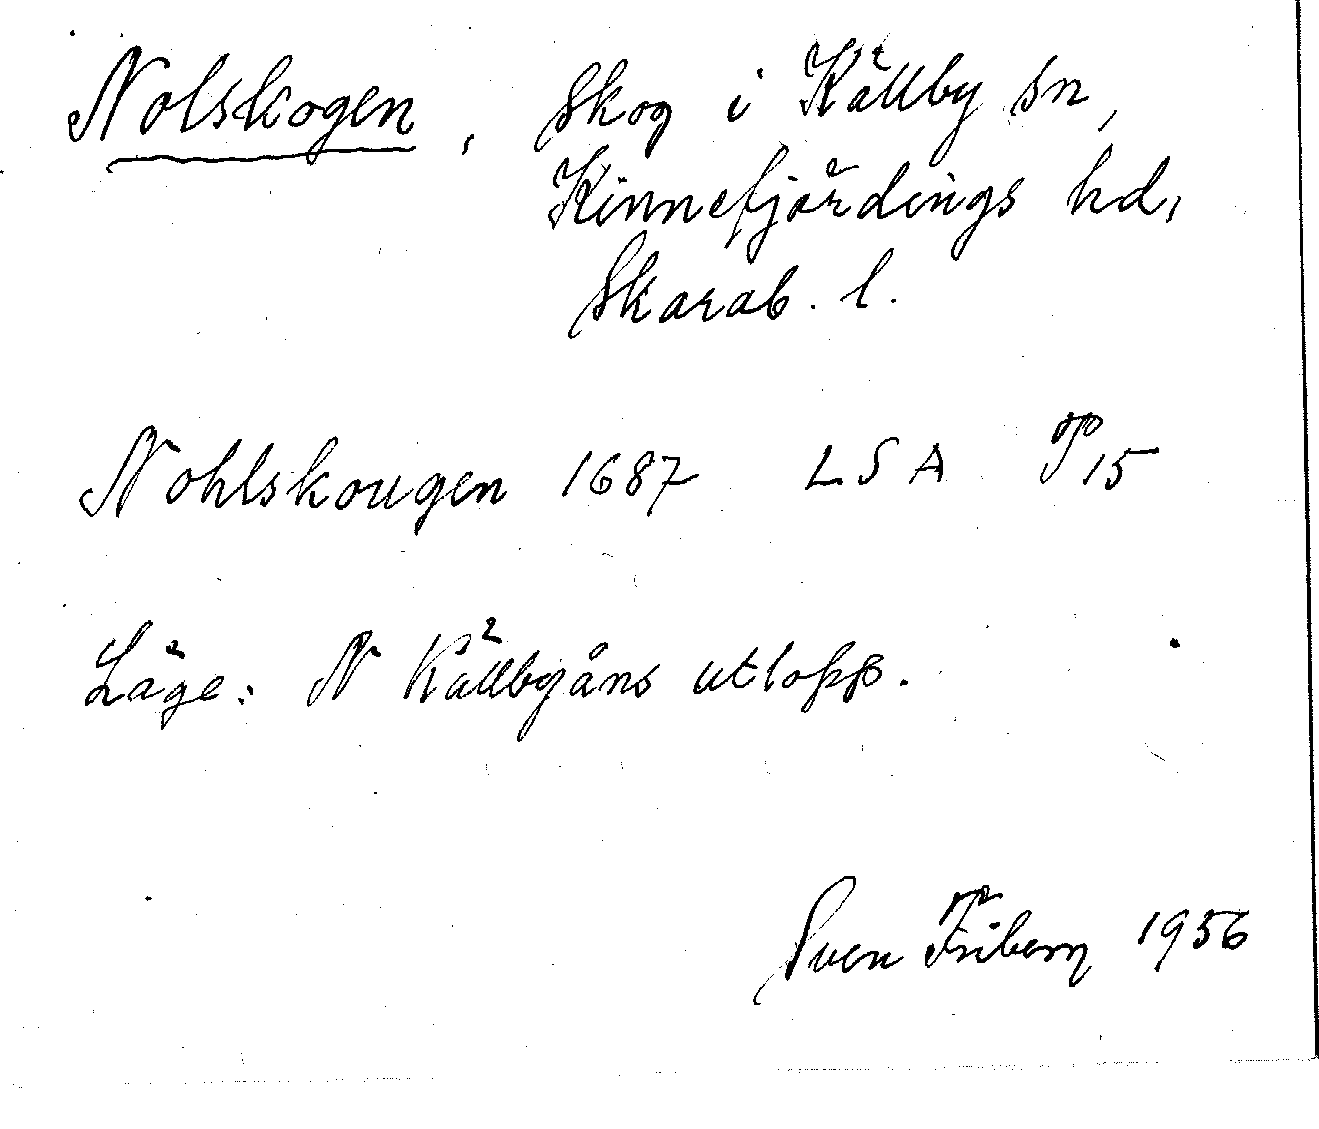 Nolskogen, Skog i Källby sn,
Kinnefjärdings hd,
Skarab. l.
Nohlskougen 1687 LSA P15
Läge: N Källbyåns utlopp.
Sven Friberg 1956